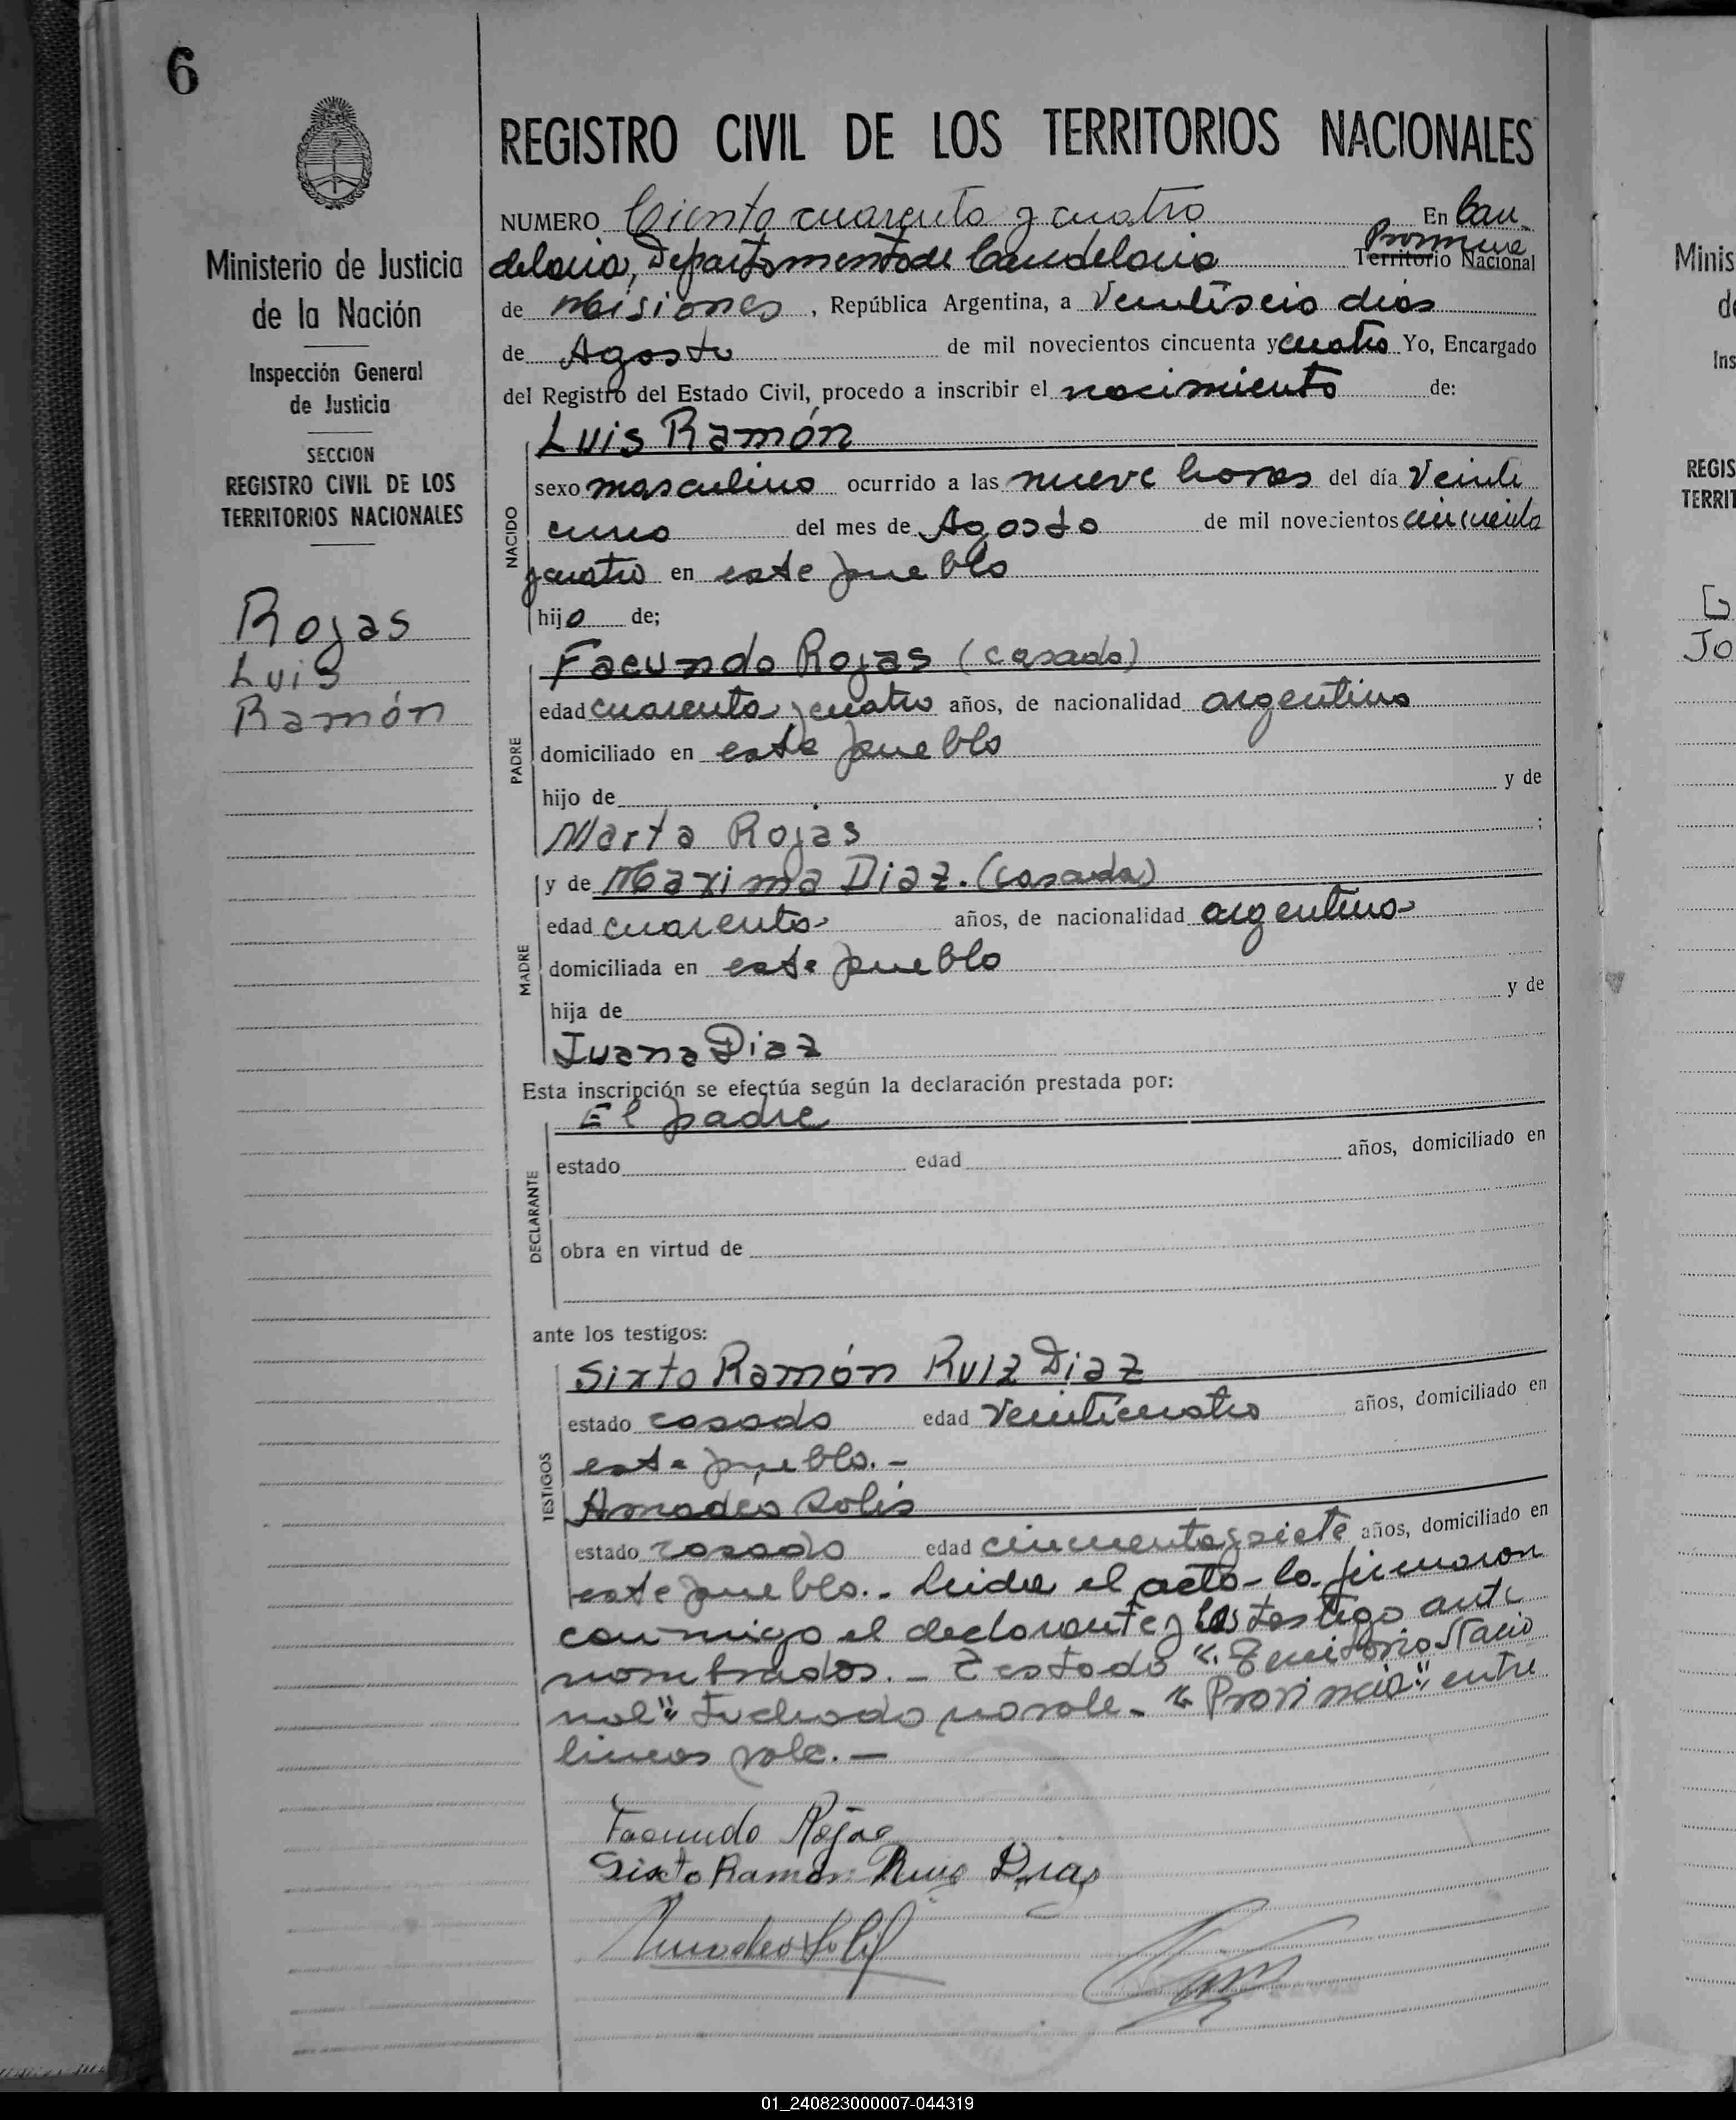 6
REGISTRO CIVIL DE LOS TERRITORIOS NACIONALES
Ministerio de Justicia
de la Nación
Inspección General
de Justicia
SECCION
REGISTRO CIVIL DE LOS
TERRITORIOS NACIONALES
Rojas
Luis
Ramón
NUMERO Ciento cuarenta y cuatro En Can
delaria, Departamento de Candelaria Provincia Territorio Nacional
de Misiones, República Argentina, a Veintiseis dias
de Agosto de mil novecientos cincuenta y cuatro Yo, Encargado
del Registro del Estado Civil, procedo a inscribir el nacimiento de:
Luis Ramón
NACIDO
sexo masculino ocurrido a las nueve horas del día Veinti
uno del mes de Agosto de mil novecientos cincuenta
y cuatro en este pueblo
hijo de;
Facundo Rojas (casado)
PADRE
edad cuarenta y cuatro años, de nacionalidad argentino
domiciliado en este pueblo
hijo de y de
Marta Rojas ;
y de Maxima Diaz. (casada)
MADRE
edad cuarenta años, de nacionalidad argentina
domiciliada en este pueblo
hija de y de
Juana Diaz
Esta inscripción se efectúa según la declaración prestada por:
El padre
DECLARANTE
estado edad años, domiciliado en
obra en virtud de
ante los testigos:
Sixto Ramón Ruiz Diaz
TESTIGOS
estado casado edad Veinticuatro años, domiciliado en
este pueblo.-
Amadeo Solis
estado casado edad cincuenta y siete años, domiciliado en
este pueblo.- Leida el acta - la firmaron
conmigo el declarante y los testigo ante
nombrados.- Testado ". Territorio Nacio
nal" tachado no vale.- "Provincia" entre
lineas vale.-
Facundo Rojas
Sixto Ramon Ruiz Diaz
Amadeo Solis
Minis
de
Ins
REGIS
TERRIT
Jo
01_240823000007-044319